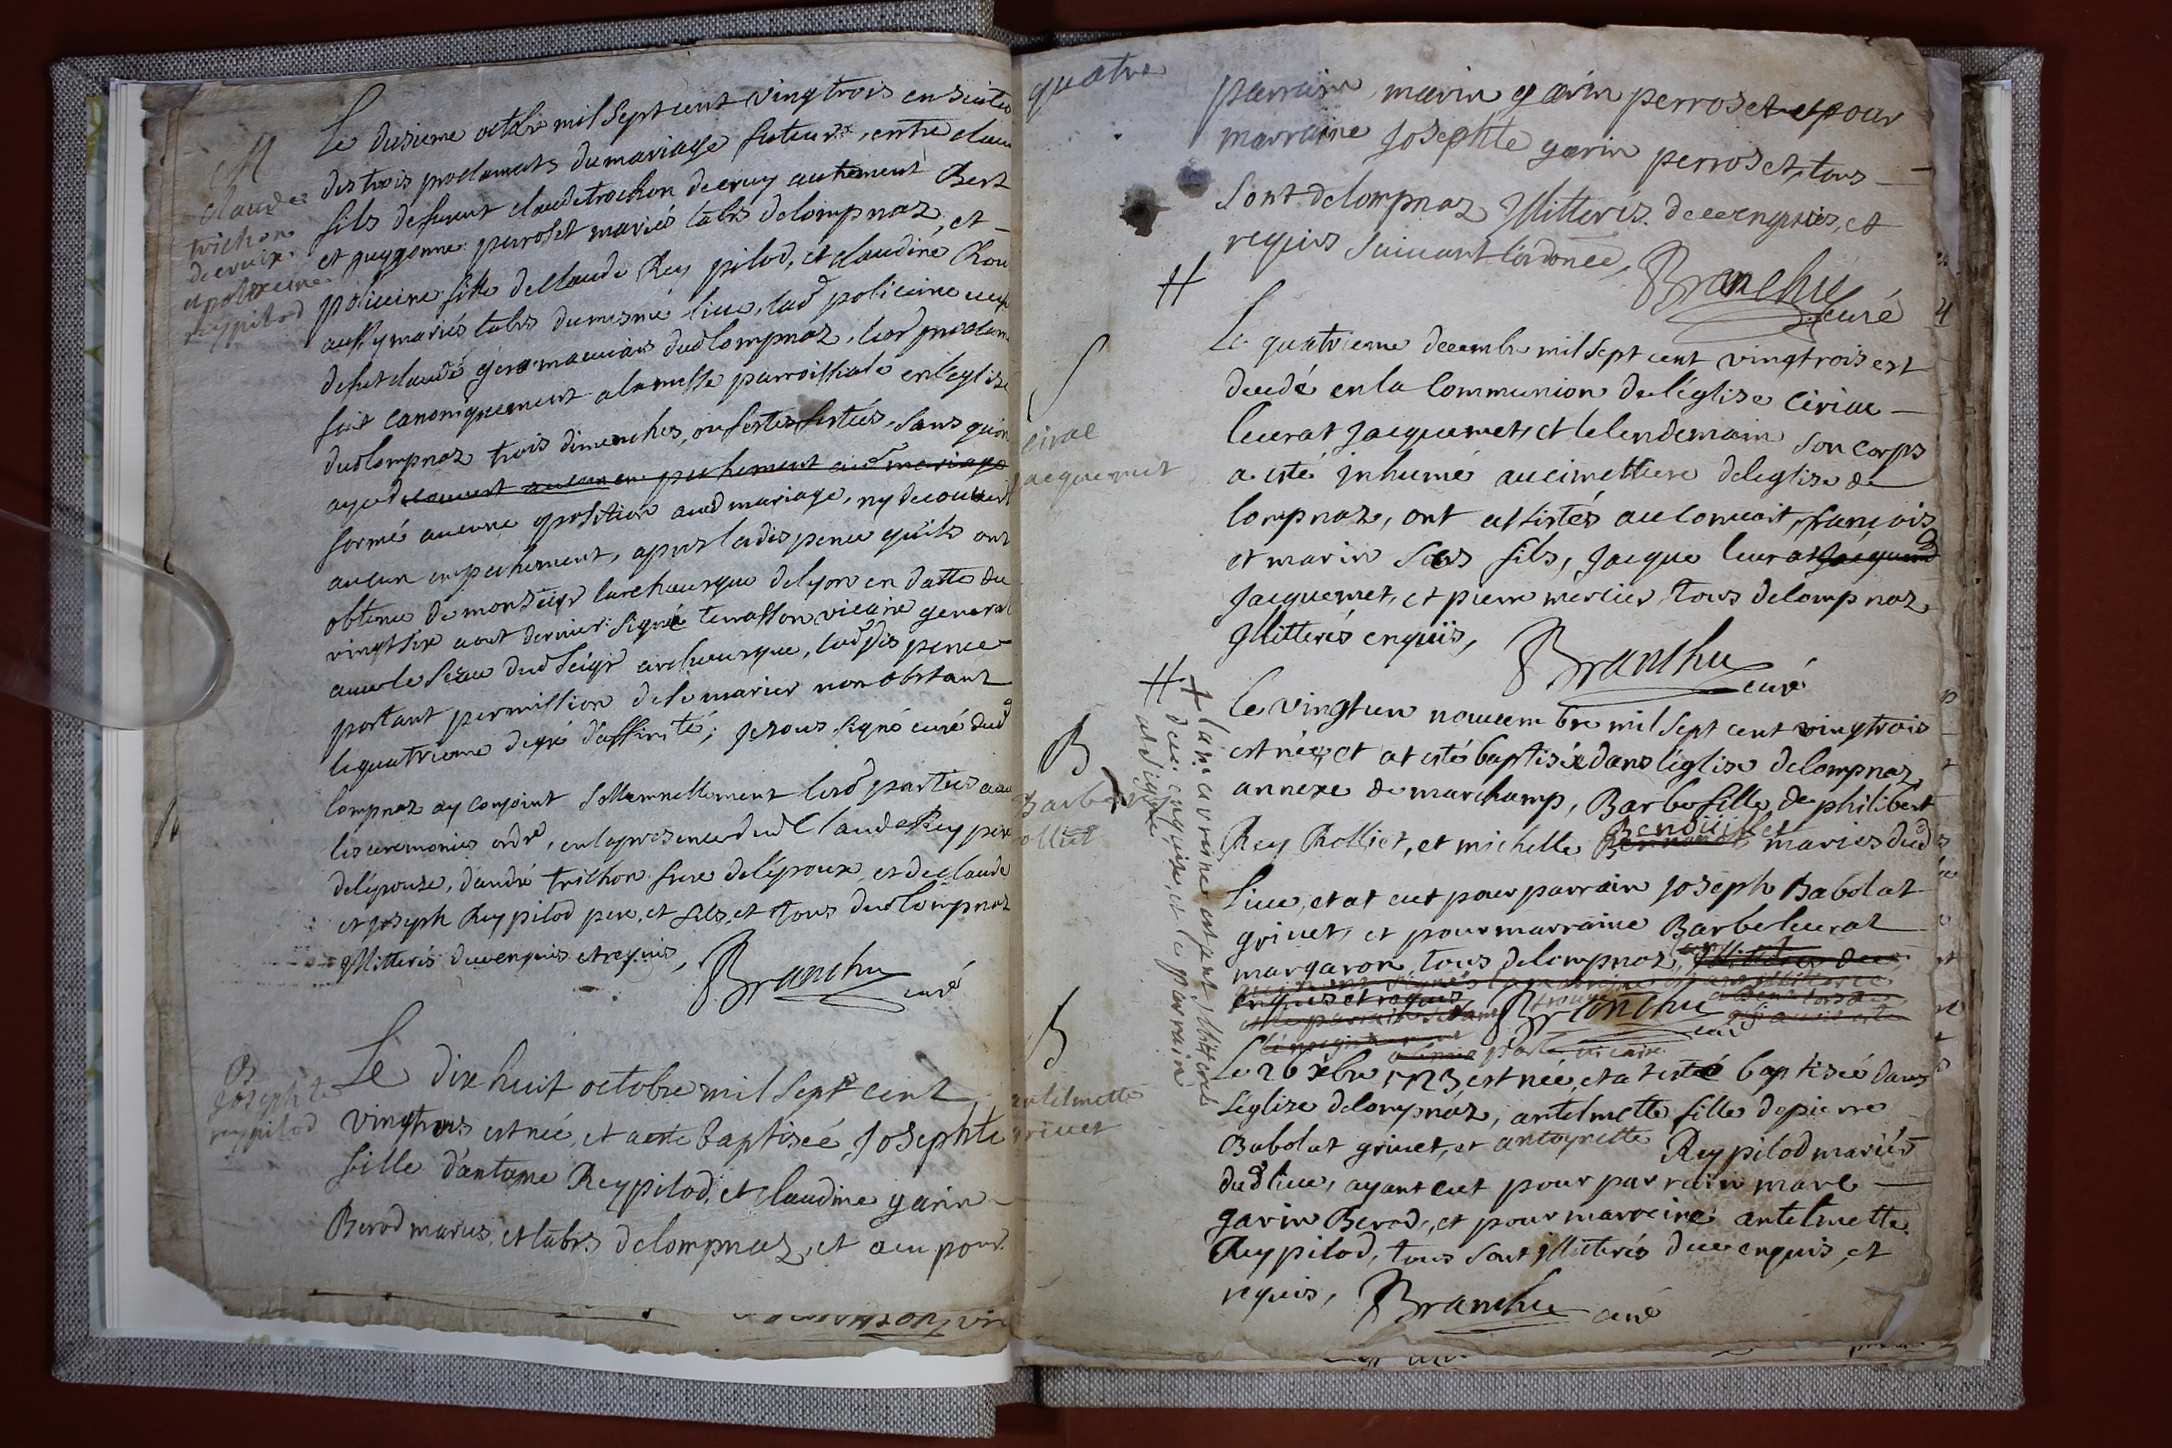 M
claude
trichon
decruix
et polixeine
reypilod
Le dusieme octobre mil sept cent vingtrois en suitte
des trois proclamats du mariage futeur, entre clau
fils de funut claude trochon decruy autrement Bert
et guygonne perroset mariés labrs delompnaz, et
policeine fille de claude Rey pilod, et claudine Rou
aussy mariés labrs dumesme lieu, lad policeine
defut claude
fait canoniquement a la messe parroissiale en l'eglise
dud lompnaz trois dimenches, ou festes festées, sans quon
aye decouvert aucun empechement aud mariage
formé aucune oposition aud mariage, ny decouvert
aucun empechement, apres la dispence quils ont
obtenu de monseigr l'archeveque de lyon en datte du
vingt six aout dernier signé terrasson vicaire general
avec le seau dud seigr archeveque, lad dispence
portant permission de se marier non obstant
le quatrieme degré d'affinité; je sous signé curé dud
lompnaz ay conjoint sollemnellement lesd parties avec
les ceremonies ordre, en la presence dud Claude Rey pere
de l'épouse, d'andré trichon frere de l'époux, et de claude
et joseph Rey pilod pere, et fils, et tous dud lompnaz
jllitterés duenquis et requis,
Branchu curé
B
Josephte
reypilod
Le dix huit octobre mil sept cent
vingtrois est née, et a esté baptisée, Josephte
fille d'antome Reypilod, et claudine garin
Berod mariés, et labrs delompnaz, et a eu pour
quatre
parrain marin garin perroset et pour
marraine Josephte garin perroset, tous
sont delompnaz Jllitterés. deuenquis, et
requis suivant l'ordonce,
Branchu curé
4
cirac
jacquemet
Le quatrieme decembre mil sept cent vingtrois est
decedé en la Communion de l'église Ciriac
leurat Jacquemet, et le lendemain son corps
a esté jnhumé au cimettiere de l'eglise de
lompnaz, ont assistés au convoit, francois
et marin ses fils, Jacque leurat Jacquem
Jacquemet, et pierre mercier, tous delompnaz
Jllitterés enquis,
Branchu
curé
B
Barbe
rolliet
Le vingtun novembre mil sept cent vingtrois
est née, et at esté baptisée dans l'église delompnaz
annexe de marchamp, Barbe fille de philibert
Rey Rolliet, et michelle Bernard Benoiit et mariés dud
lieu, et at eut pour parrain joseph Babolat
grivet, et pour marraine Barbe leurat
margaron, tous delompnaz, Jllitterés due
enquis et requis,
Branchu
curé
+ la marraine est jllitterée
deue enquise, et le parrain
B
antelmette
grivet
Le 26 xbre 1723 est née, et at esté baptisée dans
l'église delompnaz, antelmette fille de pierre
Babolat grivet, et antoynette Rey pilod mariés
dud lieu, ayant eut pour parrain marc
garin Berod, et pour marreine antelmette
Reypilod, tous sont jllitterés due enquis, et
requis,
Branchu curé